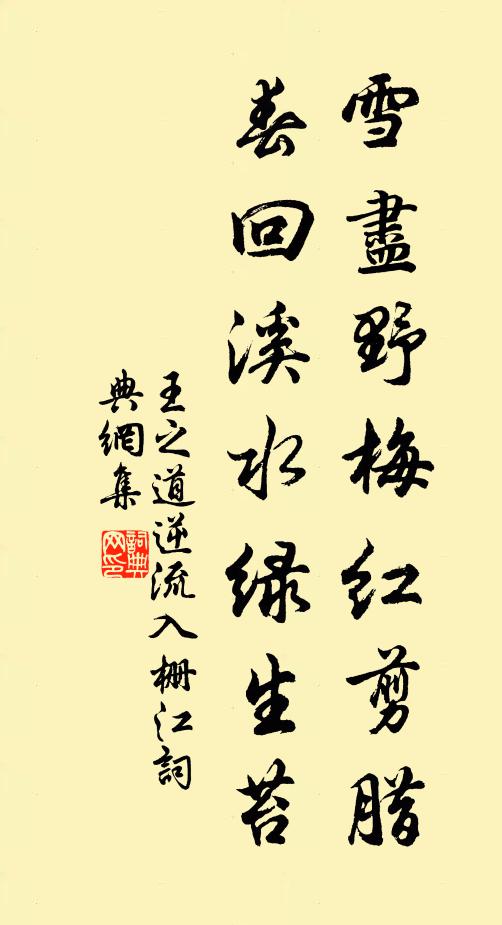 雪盡野梅紅剪腊
春回溪水緑生苔
王之道逆流入柵江詞
典網集
詞典網印